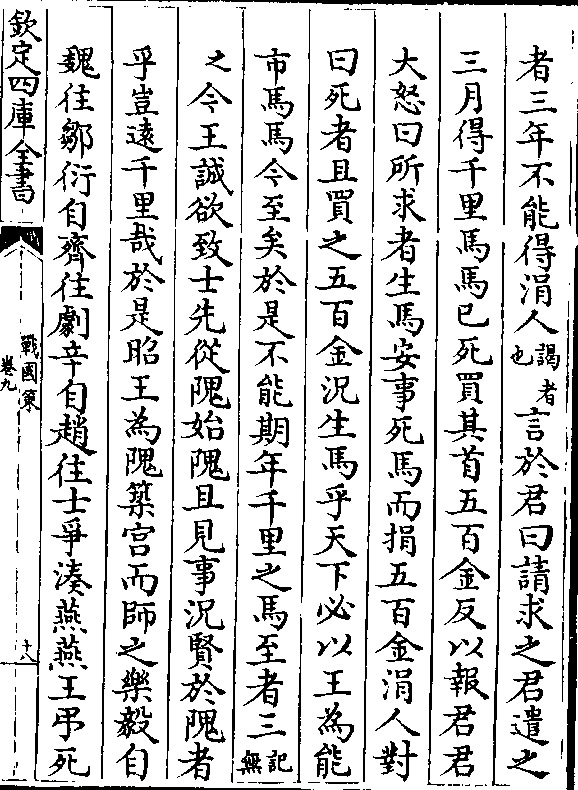 者三年不能得涓人謁者也言於君曰請求之君遣之
三月得千里馬馬已死買其首五百金反以報君君
大怒曰所求者生馬安事死馬而捐五百金涓人對
曰死者且買之五百金況生馬乎天下必以王為能
市馬馬今至矣於是不能期年千里之馬至者三記無
之今王誠欲致士先從隗始隗且見事況賢於隗者
乎豈遠千里哉於是昭王為隗築宫而師之樂毅自
魏往鄒衍自齊往劇辛自趙往士爭湊燕燕王弔死
欽定四庫全書
戰國策
卷九
十八